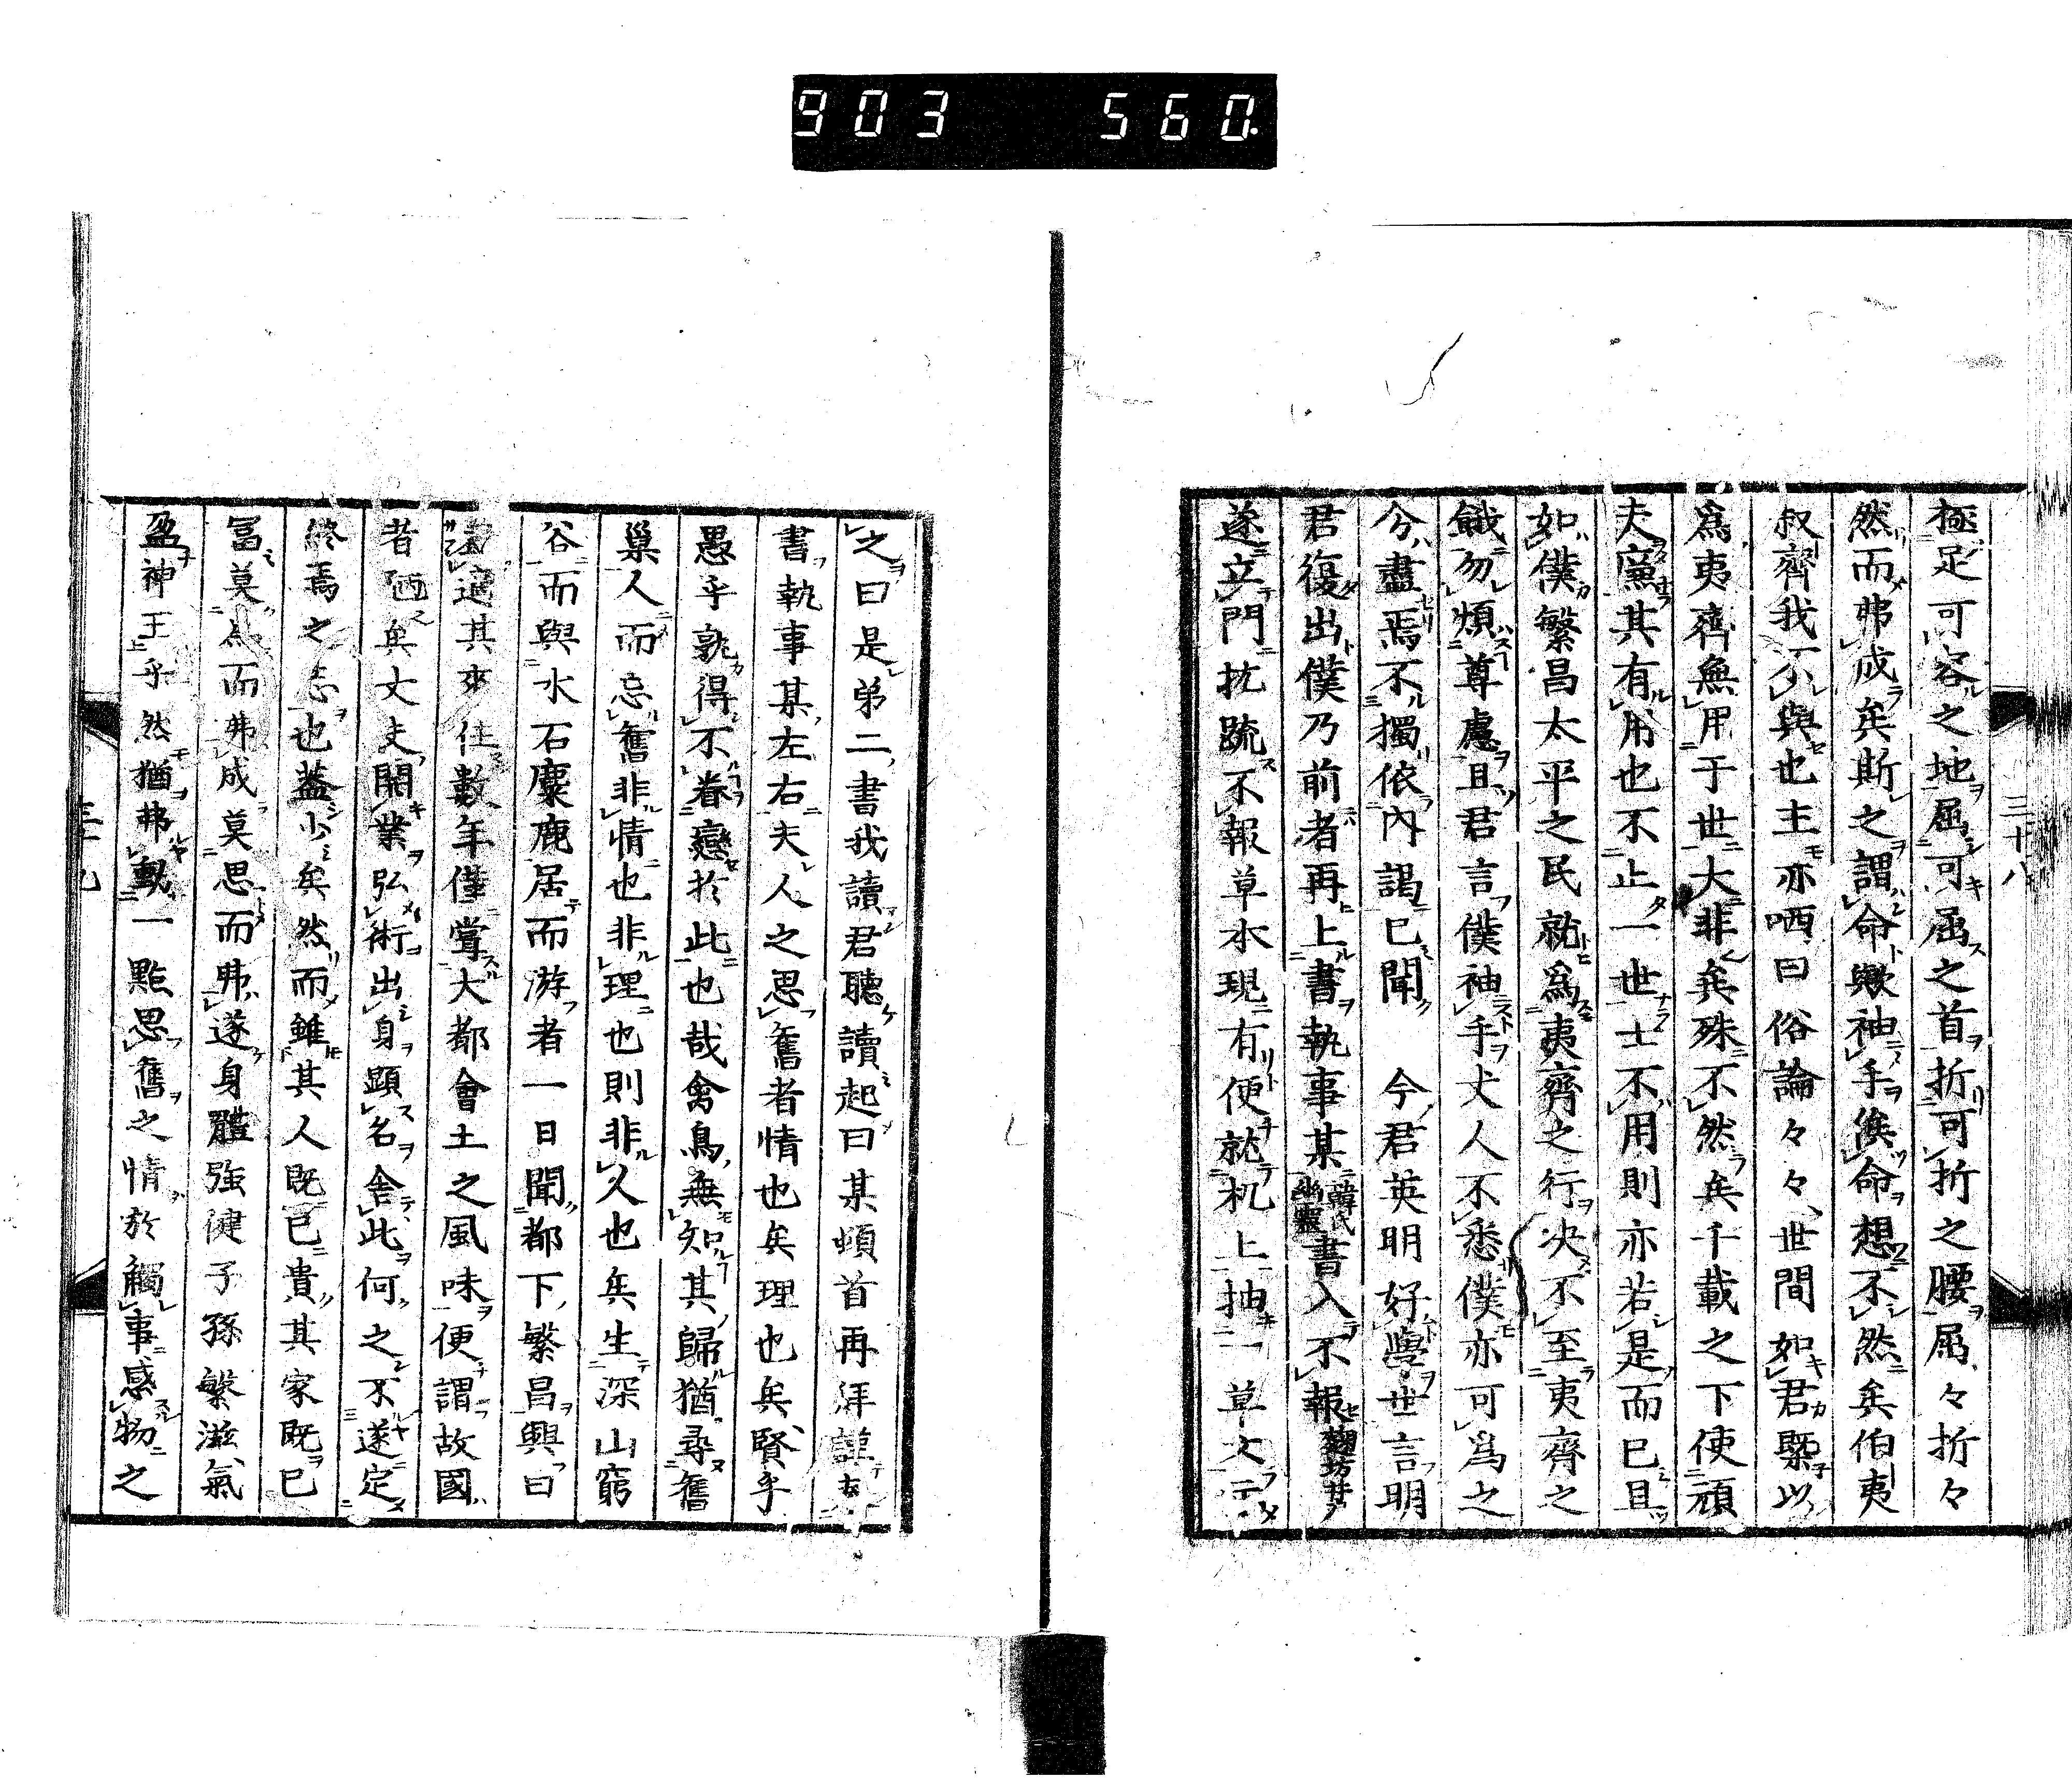 903 560
三十八
極足可容之地屈可屈之首折可折之腰屈々折々
然而弗成矣斯之謂命歟袖手俟命想不然矣伯夷
叔齊我不與也主亦哂曰俗論々々世間如君槩以
爲夷齊無用于世大非矣殊不然矣千載之下使頑
夫廉其有用也不止一世士不用則亦若是而已且
如僕繁昌太平之民就爲夷齊之行决不至夷齊之
餓勿煩尊慮且君言僕袖手犬人不悉僕亦可爲之
分盡焉不獨依內謁已聞 今君英明好學世言明
君復出僕乃前者再上書執事某書入不報
遂立門抗疏不報草木現有便就机上抽一草文示
之曰是弟二書我讀君聽讀起曰某頓首再拜謹
書執事某左右夫人之思舊者情也矣理也矣賢乎
愚乎孰得不眷戀於此也哉禽鳥無知其歸猶尋舊
巢人而忘舊非情也非理也則非人也矣生深山窮
谷而與水石麋鹿居而游者一日聞都下繁昌興曰
適其來住數年僅嘗大都會土之風味便謂故國
者陋矣丈夫開業弘術出身顕名舍此何之不遂定
終焉之志也蓋少矣然而雖其人既已貴其家既已
冨莫爲而弗成莫思而弗遂身體强健子孫繁滋氣
盈神王乎然猶弗動一點思舊之情於觸事感物之
三十九